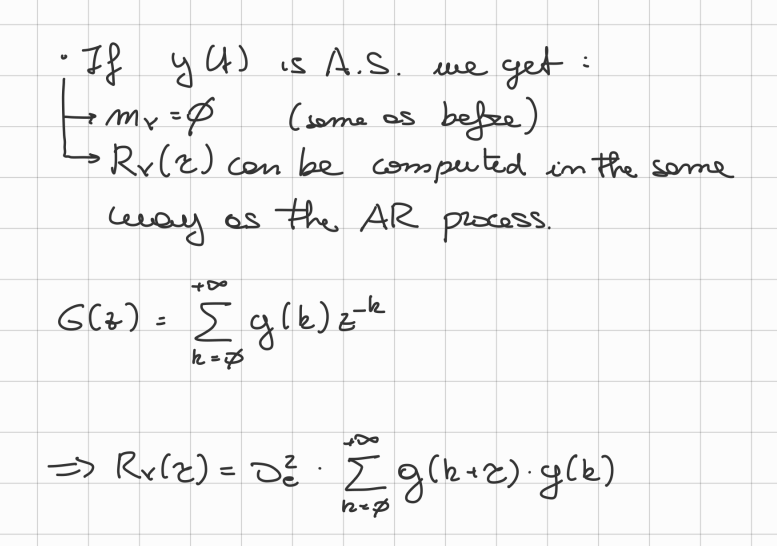 · If y(t) is A.S. we get :
→ mᵧ = ∅ (same as before)
→ Rᵧ(τ) can be computed in the same
way as the AR process.
G(z) = ∑_{k=∅}^{+∞} g(k) z^{-k}
⇒ Rᵧ(τ) = σₑ² · ∑_{k=∅}^{+∞} g(k+τ) · g(k)